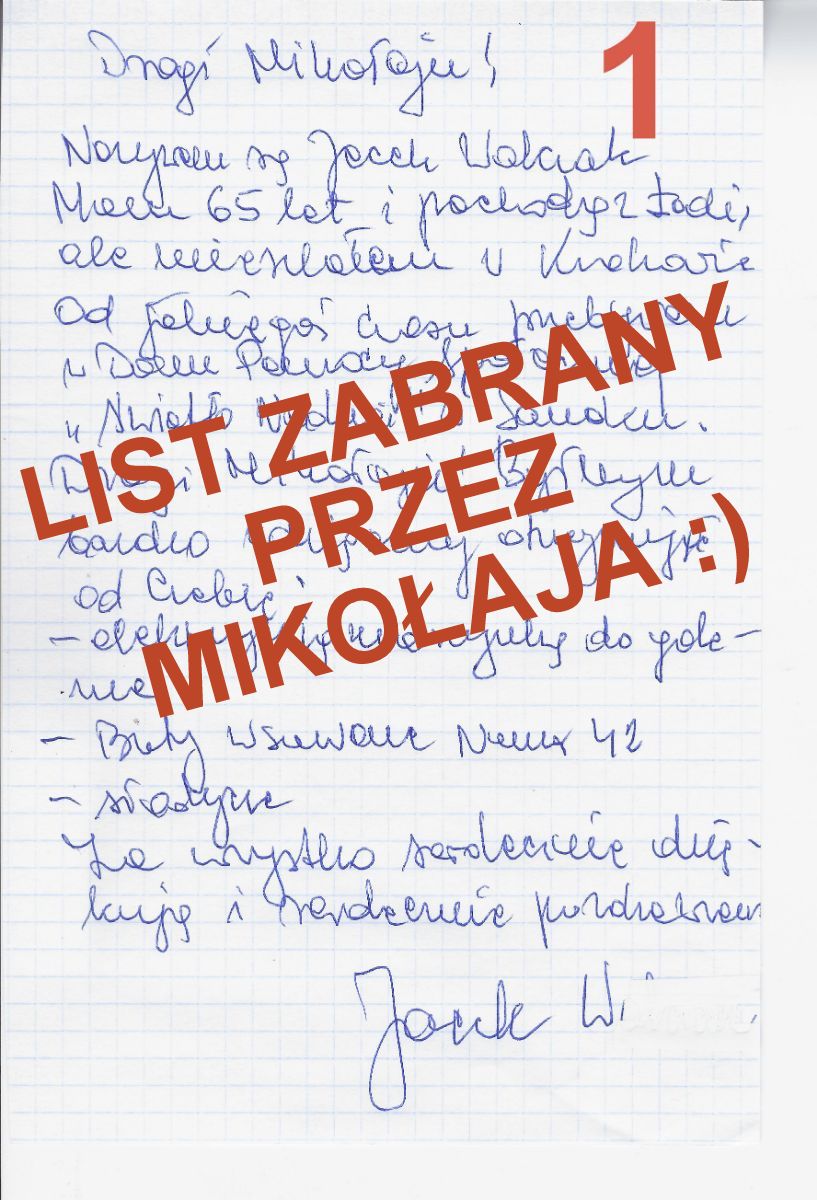 1
Drogi Mikołaju!
Nazywam się Jacek Walczak
Mam 65 lat i pochodzę z Łodzi,
ale mieszkałem w Krakowie
Od jakiegoś czasu przebywam
w Domu Pomocy Społecznej
"Światło Nadziei" w Sandom.
Drogi Mikołaju! Byłbym
bardzo otrzymując
od Ciebie
– elektryczną maszynkę do gole –
nia
– Buty wsuwane Numer 42
– słodycze
Za wszystko serdecznie dzię –
kuję i serdecznie pozdrawiam
Jacek W
LIST ZABRANY
PRZEZ
MIKOŁAJA :)